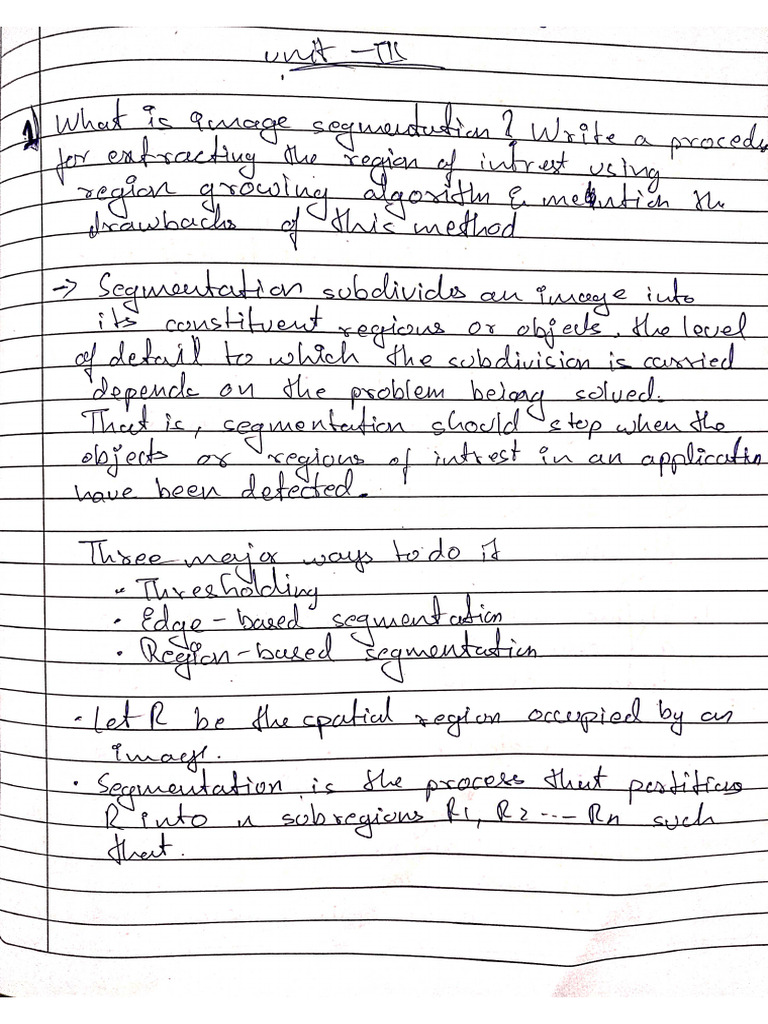 unit - III
1) What is image segmentation? Write a procedu
for extracting the region of intrest using
region growing algorithm & mention the
drawbacks of this method
→ Segmentation subdivides an image into
its constituent regions or objects. the level
of detail to which the subdivision is carried
depends on the problem being solved.
That is, segmentation should stop when the
objects or regions of intrest in an application
have been detected.
Three major ways to do it
• Thresholding
• Edge-based segmentation
• Region-based segmentation
• Let R be the spatial region occupied by an
image.
• Segmentation is the process that partitions
R into n subregions R1, R2 ---- Rn such
that.